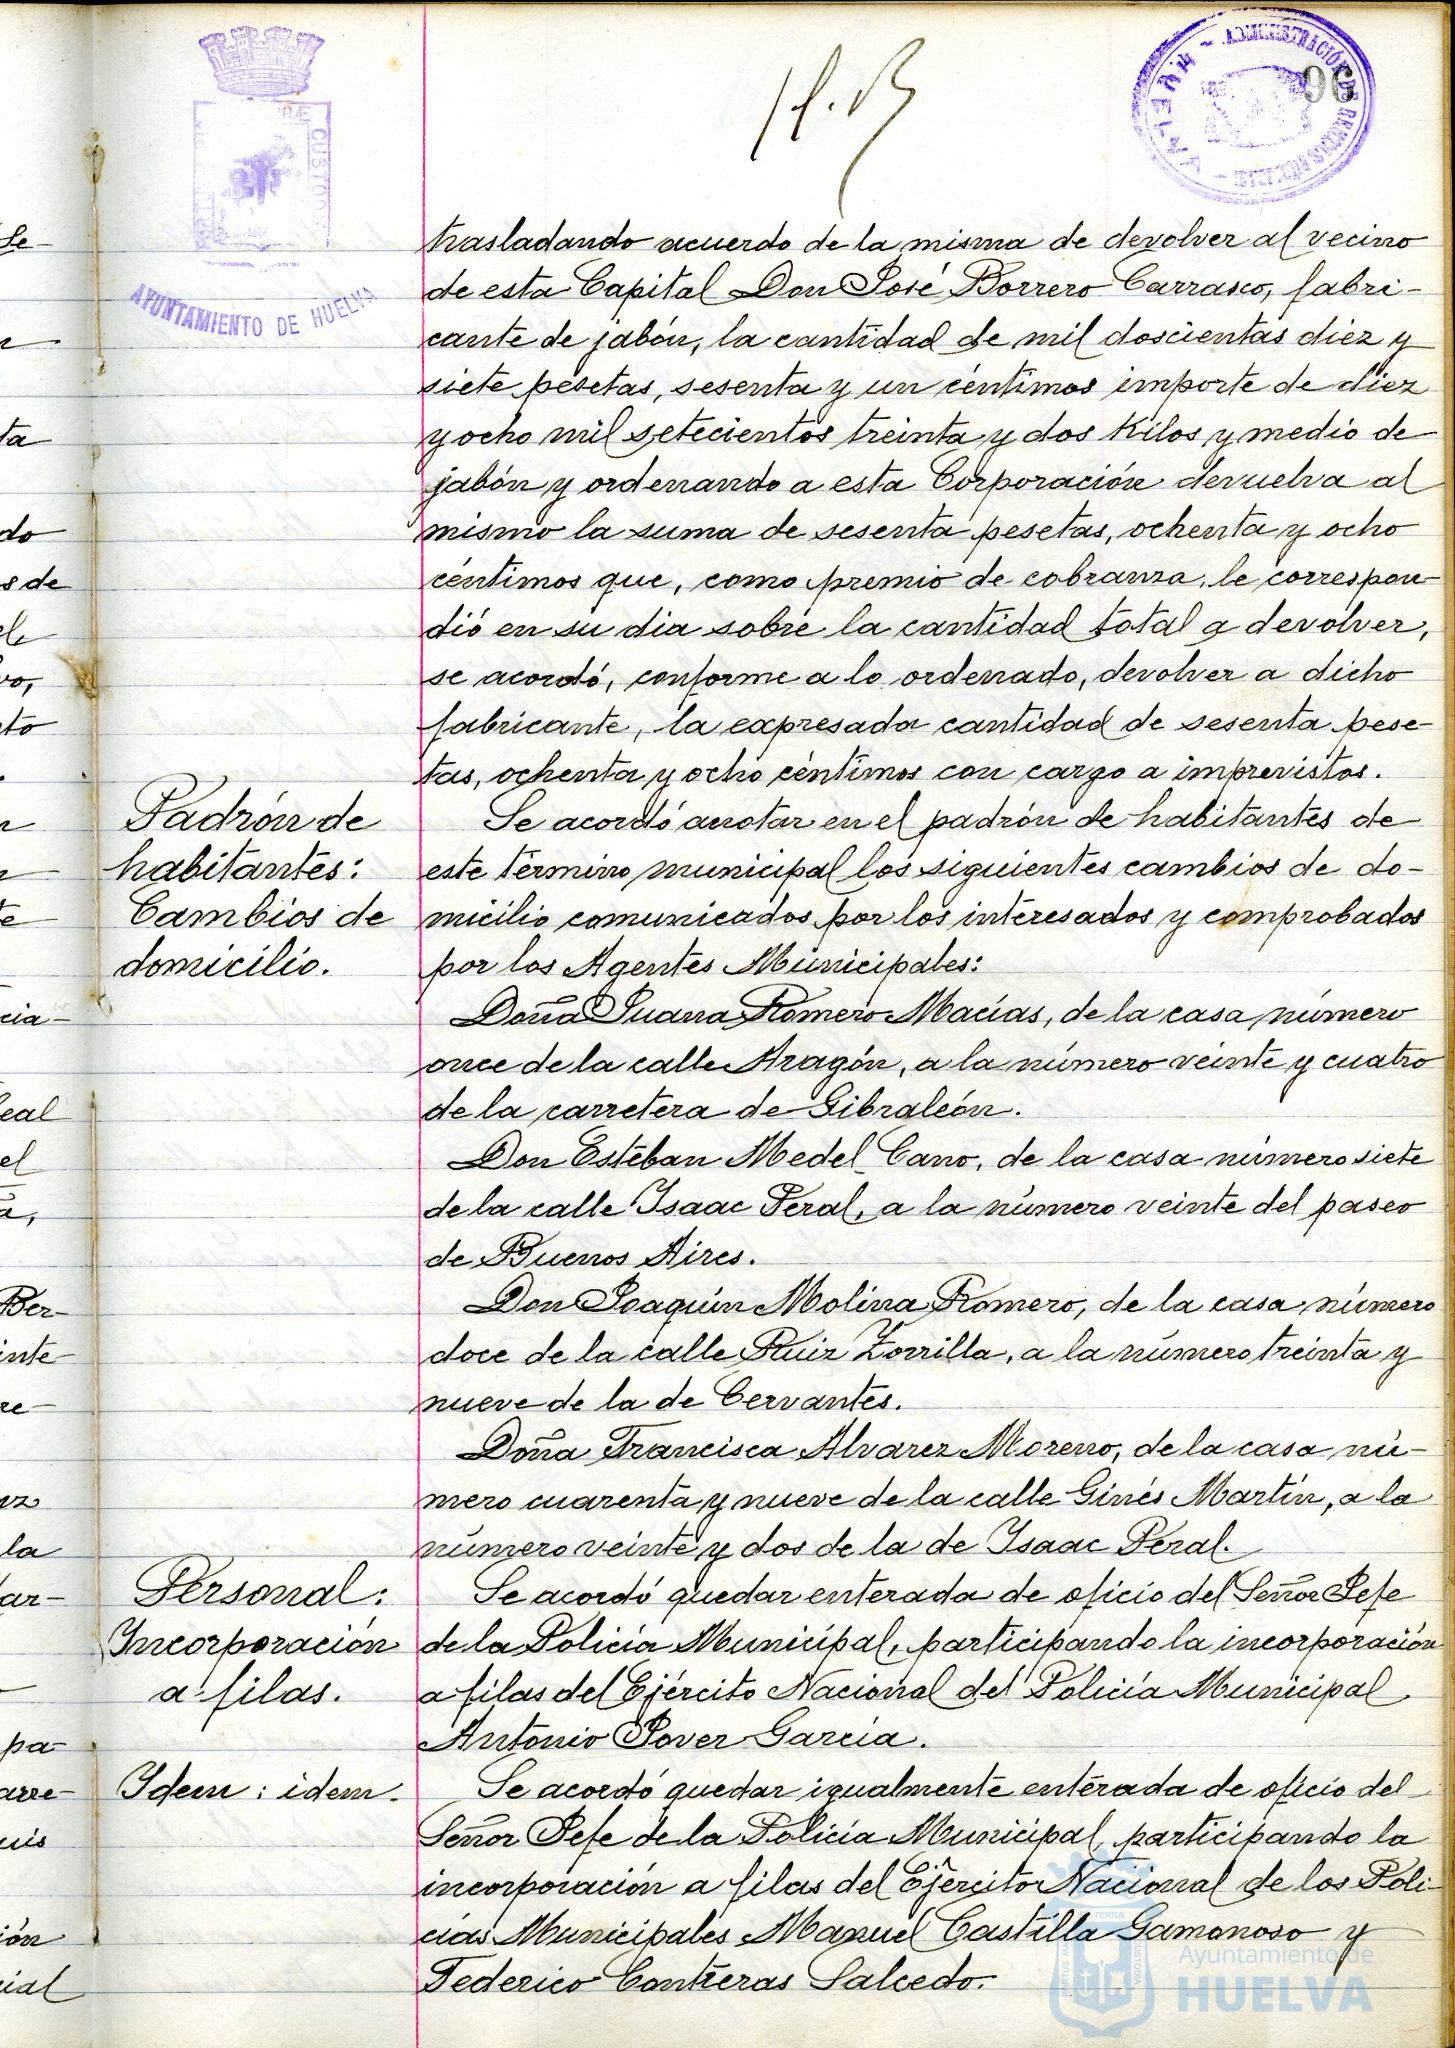 AYUNTAMIENTO DE HUELVA
96
trasladando acuerdo de la misma de devolver al vecino
de esta Capital Don José Borrero Carrasco, fabri-
cante de jabón, la cantidad de mil doscientas diez y
siete pesetas, sesenta y un céntimos importe de diez
y ocho mil setecientos treinta y dos kilos y medio de
jabón y ordenando a esta Corporación devuelva al
mismo la suma de sesenta pesetas, ochenta y ocho
céntimos que, como premio de cobranza, le correspon-
dió en su dia sobre la cantidad total a devolver,
se acordó, conforme a lo ordenado, devolver a dicho
fabricante, la expresada cantidad de sesenta pese-
tas, ochenta y ocho céntimos con cargo a imprevistos.
Padrón de
habitantes:
Cambios de
domicilio.
Se acordó anotar en el padrón de habitantes de
este término municipal los siguientes cambios de do-
micilio comunicados por los interesados y comprobados
por los Agentes Municipales:
Doña Juana Romero Macías, de la casa número
once de la calle Aragón, a la número veinte y cuatro
de la carretera de Gibraleón.
Don Esteban Medel Cano, de la casa número siete
de la calle Isaac Peral, a la número veinte del paseo
de Buenos Aires.
Don Joaquín Molina Romero, de la casa número
doce de la calle Ruiz Zorrilla, a la número treinta y
nueve de la de Cervantes.
Doña Francisca Alvarez Moreno, de la casa nú-
mero cuarenta y nueve de la calle Ginés Martín, a la
número veinte y dos de la de Isaac Peral.
Personal:
Incorporación
a filas.
Se acordó quedar enterada de oficio del Señor Jefe
de la Policía Municipal, participando la incorporación
a filas del Ejército Nacional del Policía Municipal
Antonio Jover García.
Idem: idem.
Se acordó quedar igualmente enterada de oficio del
Señor Jefe de la Policía Municipal, participando la
incorporación a filas del Ejército Nacional de los Poli-
cías Municipales Manuel Castilla Gamonoso y
Federico Contreras Salcedo.
Ayuntamiento de
HUELVA